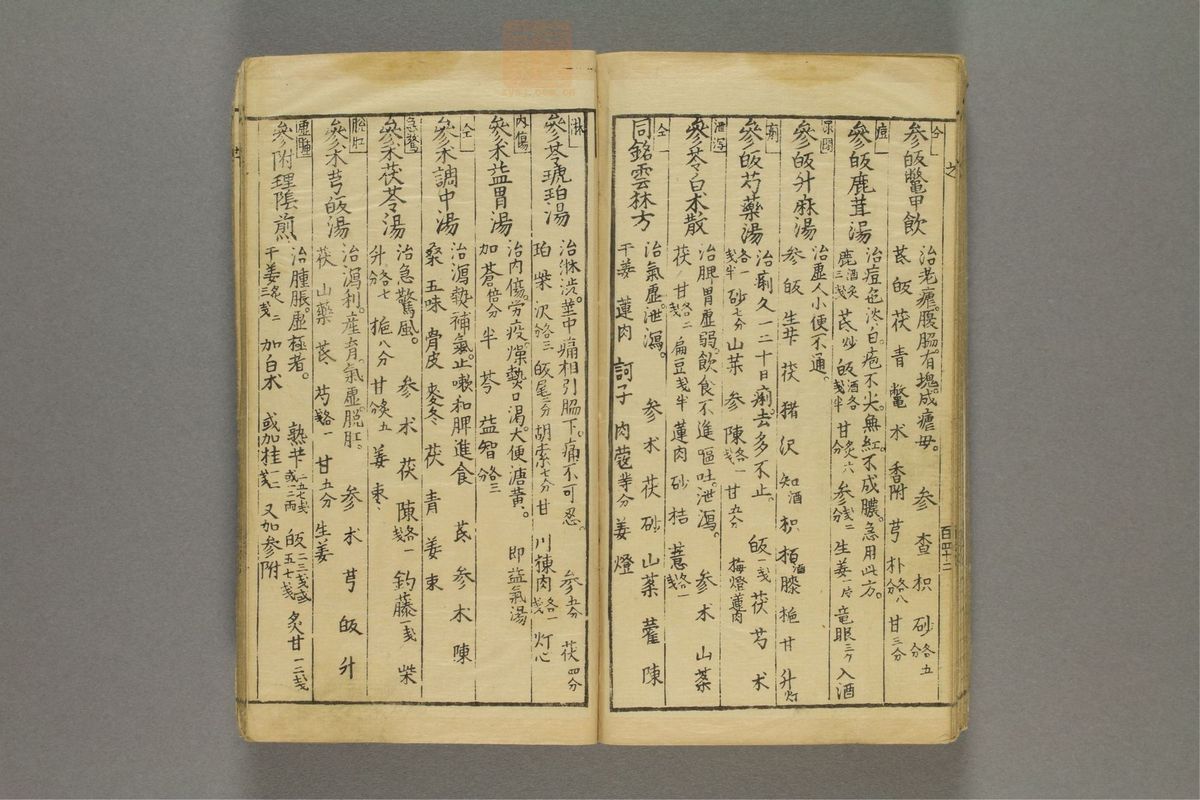 仝
參皈鼈甲飲
治老瘧。腹脇。有塊。成瘧母。 參 査 枳 砂各五分
芪 皈 茯 青 鼈 朮 香附 芎 朴各八分 甘三分
痘
參皈鹿茸湯
治痘色淡。白。疱不尖。無紅。不成膿。急用此方。
鹿酒炙三戔 芪炒 皈酒各戔半 甘炙六分 參二戔 生姜一片 竜眼三ケ 入酒
尿閉
參皈升麻湯
治虛人小便不通。
參 皈 生芐 茯 猪 沢 知酒 枳 栢酒 膝 梔 甘 升 灯
痢
參皈芍藥湯
治痢久一二十日痢。去多不止。 皈一戔 茯 芍 朮
各一戔半 砂七分 山薬 參 陳各一戔 甘五分 梅 燈 蓮肉
泄瀉
參苓白朮散
治脾胃虛弱。飲食不進嘔吐。泄瀉。 參 朮 山薬
茯 甘各二戔 扁豆戔半 蓮肉 砂 桔 薏各一戔
仝
同銘雲林方
治氣虛。泄瀉。 參 朮 茯 砂 山薬 藿 陳
干姜 蓮肉 訶子 肉蔲等分 姜 燈
百四十二
淋
參苓琥珀湯
治淋渋。莖中痛相引脇下。痛不可忍。 參五分 茯四分
珀 柴 沢各三分 皈尾二分 胡索七分 甘 川楝肉各一戔 灯心
內傷
參朮益胃湯
治內傷。労疫。燥熱口渇。大便溏黄。 即益氣湯
加蒼倍分半 芩 益智各三分
仝
參朮調中湯
治瀉熱補氣。止嗽和脾進食 芪 參 朮 陳
桑 五味 骨皮 麥冬 茯 青 姜 棗
急驚
參朮茯苓湯
治急驚風。 參 朮 茯 陳各一戔 釣藤一戔 柴
升各七分 梔八分 甘炙五分 姜 棗
脫肛
參朮芎皈湯
治瀉利。産育。氣虛。脫肛。 參 朮 芎 皈 升
茯 山藥 芪 芍各一戔 甘五分 生姜
虛腫
參附理陰煎
治腫脹。虛極者。 熟芐一五七戔或一二両 皈二三戔或五七戔 炙甘一二戔
干姜炙二三戔 加白朮 或加桂一戔 又加參附